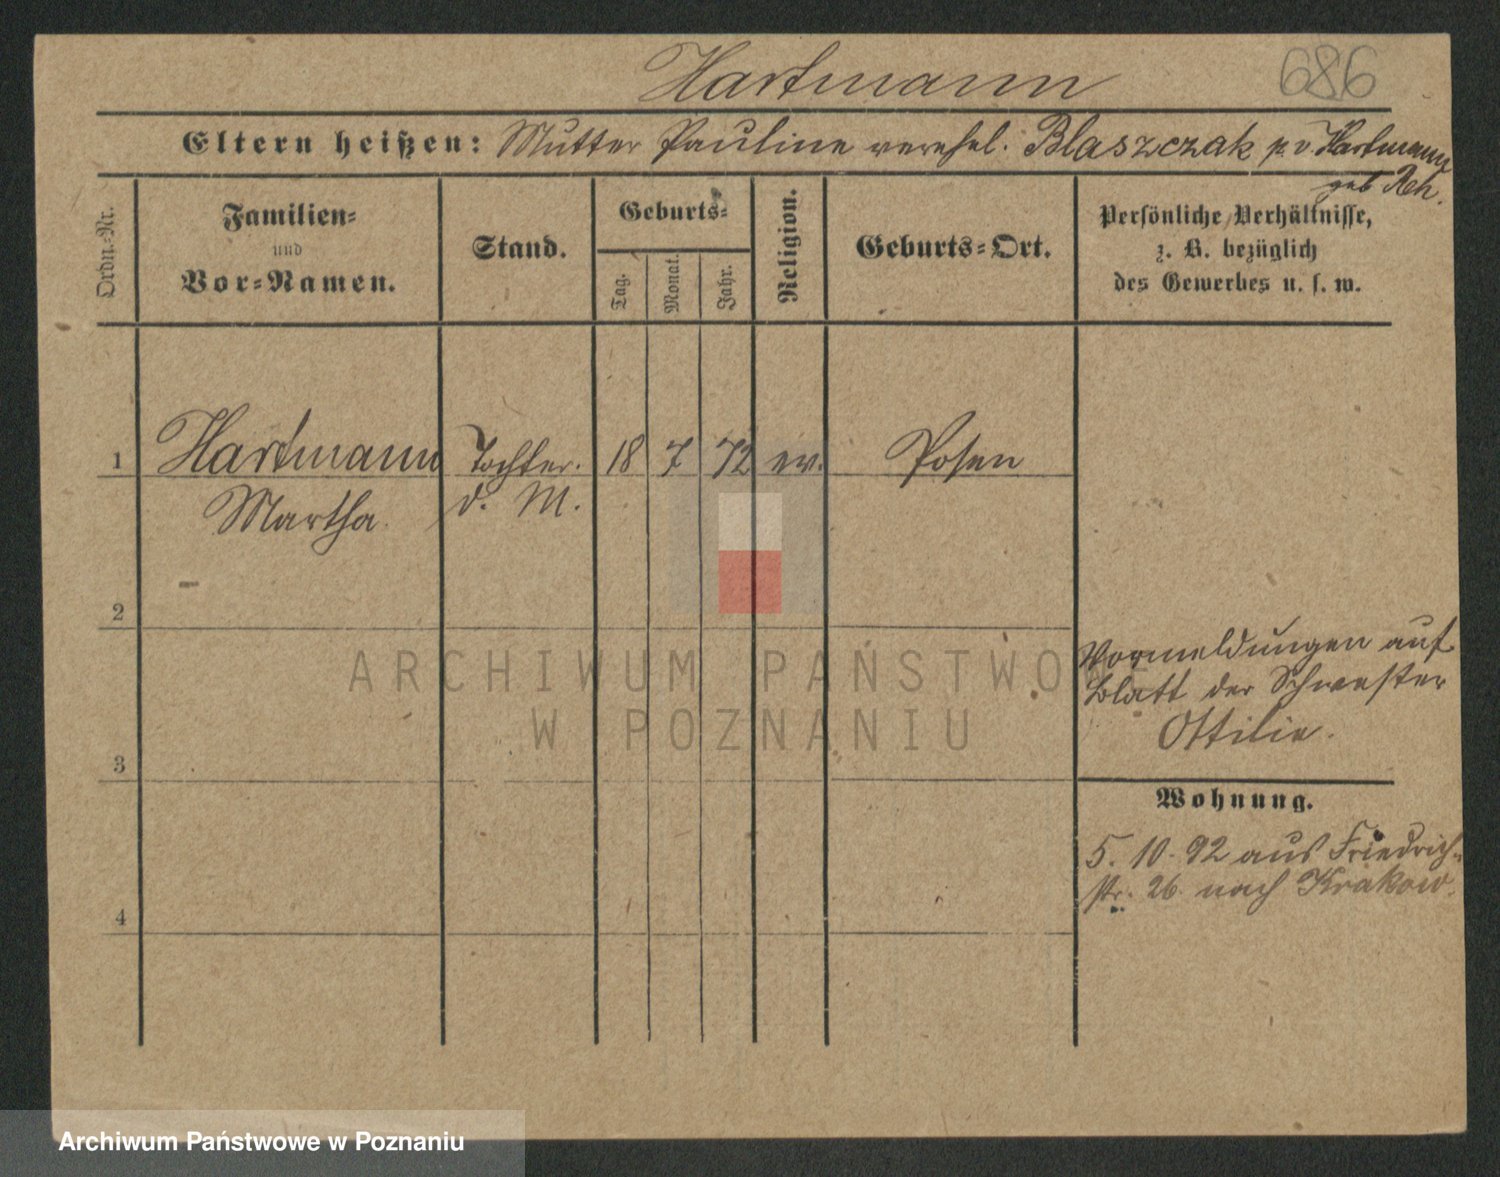 Hartmann
686
Eltern heißen: Mutter Pauline verehel. Blaszczak p. v. Hartmann
geb Reh.
Ordn.-Nr.
Familien-
und
Vor-Namen.
Stand.
Geburts-
Tag.
Monat.
Jahr.
Religion.
Geburts-Ort.
Persönliche Verhältnisse,
z. B. bezüglich
des Gewerbes u. s. w.
1 Hartmann Tochter. 18 7 72 ev. Posen
Martha. d. M.
2
Vormeldungen auf
Blatt der Schwester
Ottilie.
3
Wohnung.
5. 10. 92 aus Friedrich-
str. 26 nach Krakow.
4
ARCHIWUM PAŃSTWOWE
W POZNANIU
Archiwum Państwowe w Poznaniu